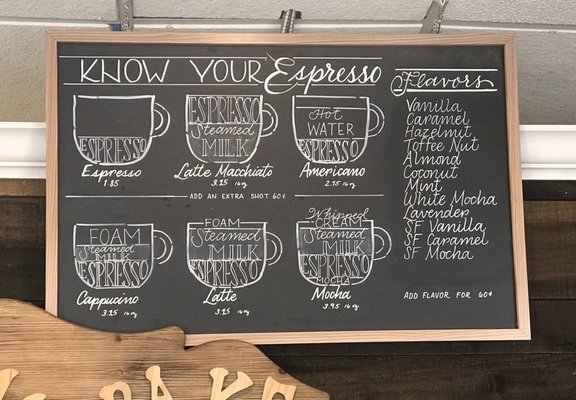 KNOW YOUR Espresso
ESPRESSO
Espresso
1.85
ESPRESSO
Steamed
MILK
Latte Macchiato
3.25 16 oz
Hot
WATER
ESPRESSO
Americano
2.75 16 oz
ADD AN EXTRA SHOT 60¢
FOAM
Steamed
MILK
ESPRESSO
Cappucino
3.25 16 oz
FOAM
Steamed
MILK
ESPRESSO
Latte
3.25 16 oz
Whipped
CREAM
Steamed
MILK
ESPRESSO
MOCHA
Mocha
3.95 16 oz
Flavors
Vanilla
Caramel
Hazelnut
Toffee Nut
Almond
Coconut
Mint
White Mocha
Lavender
SF Vanilla
SF Caramel
SF Mocha
ADD FLAVOR FOR 60¢